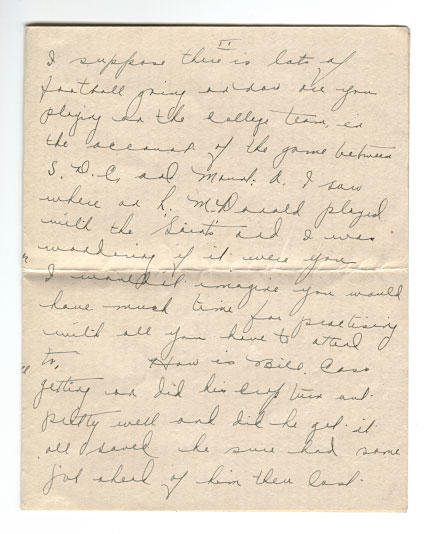 VI
I suppose there is lots of
football going on now are you
playing on the College team, in
the account of the game between
S. D. C. and Mount. A. I saw
where an L. McDonald played
with the "Saints" and I was
wondering if it were you
I wouldn't imagine you would
have much time for practising
with all you have to attend
to, How is Bill. Cass
getting on did his crop turn out
pretty well and did he get it
all saved he sure had some
job ahead of him then last